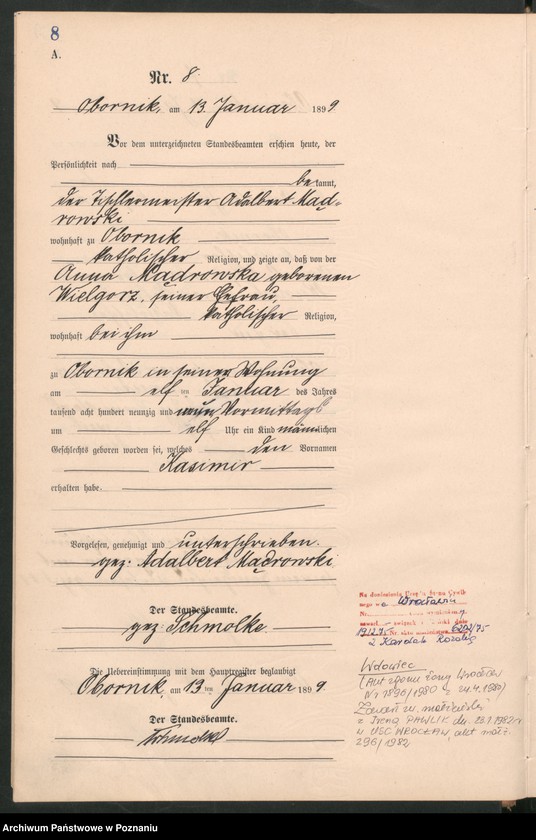 8
A.
Nr. 8
Obornik, am 13. Januar 1899
Vor dem unterzeichneten Standesbeamten erschien heute, der
Persönlichkeit nach
bekannt,
der Tischlermeister Adalbert Mąd-
rowski
wohnhaft zu Obornik
katholischer Religion, und zeigte an, daß von der
Anna Mądrowska geborenen
Wielgorz, seiner Ehefrau,
katholischer Religion,
wohnhaft bei ihm
zu Obornik in seiner Wohnung
am elf ten Januar des Jahres
tausend acht hundert neunzig und neun Vormittags
um elf Uhr ein Kind männlichen
Geschlechts geboren worden sei, welches den Vornamen
Kasimir
erhalten habe.
Vorgelesen, genehmigt und unterschrieben.
gez: Adalbert Mądrowski
Der Standesbeamte.
gez: Schmolke
Die Uebereinstimmung mit dem Hauptregister beglaubigt
Obornik, am 13 ten Januar 1899.
Der Standesbeamte.
Na doniesienie Urzędu Stanu Cywil-
nego w Wrocławiu
Nr.
zawarł związek
19.12.75 Nr aktu 6202/75
z Kardak Rozalią
Wdowiec
(Akt zgonu żony Wrocław
Nr 1896/1980 z 24.4.1980)
Zawarł zw. małżeński
z Ireną PAWLIK dn. 23.1.1982r
w USC WROCŁAW, akt małż.
296/1982
Archiwum Państwowe w Poznaniu